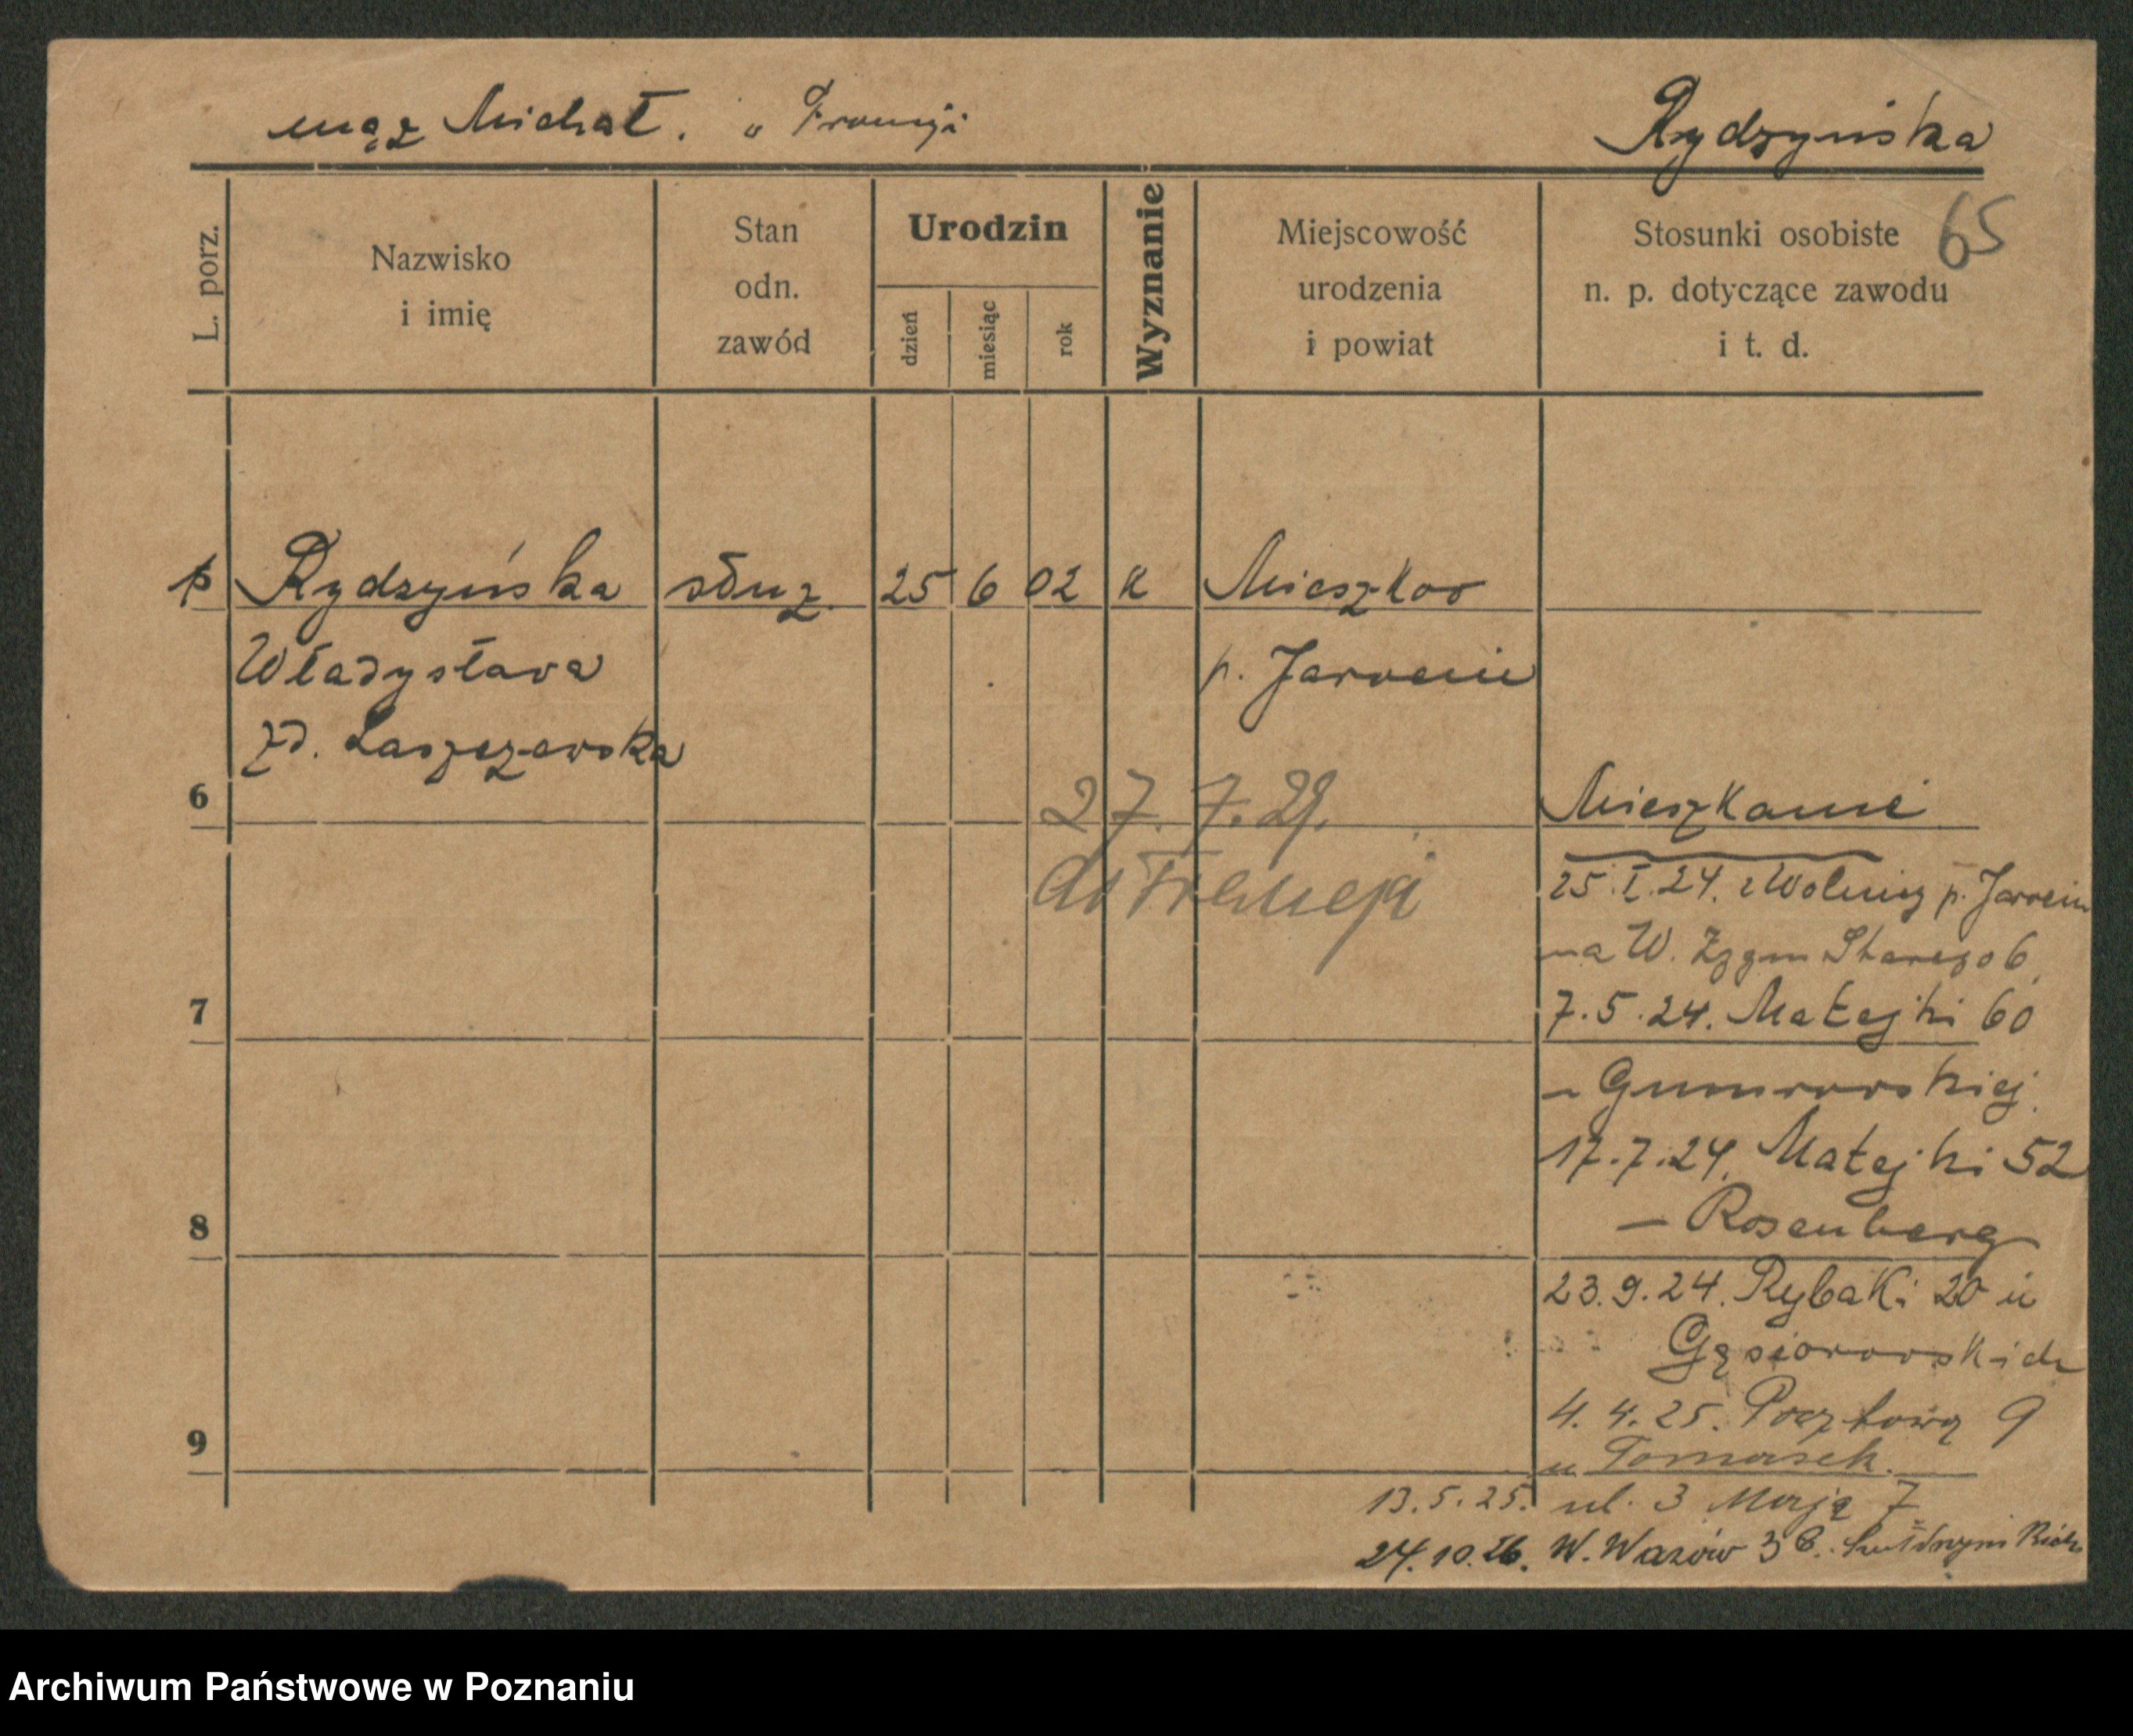 mąż Michał. w Francji
Rydzyńska
65
L. porz.
Nazwisko
i imię
Stan
odn.
zawód
Urodzin
dzień
miesiąc
rok
Wyznanie
Miejscowość
urodzenia
i powiat
Stosunki osobiste
n. p. dotyczące zawodu
i t. d.
Rydzyńska służ. 25 6 02 K Mieszków
Władysława p. Jarocin
zd. Laszczewska
6
27. 7. 29.
do Francji
Mieszkanie
25.I.24. z Wolnicy p. Jarocin
na W. Zygm Starego 6
7
7.5.24. Matejki 60
17.7.24. Matejki 52
8
– Rosenberg
23.9.24. Rybaki 20 u
Gąsiorowskich
4. 4. 25. Pocztowa 9
9
u Tomasek.
13.5.25. ul. 3 Maja 7
24.10.26. W. Wazów 3
Archiwum Państwowe w Poznaniu